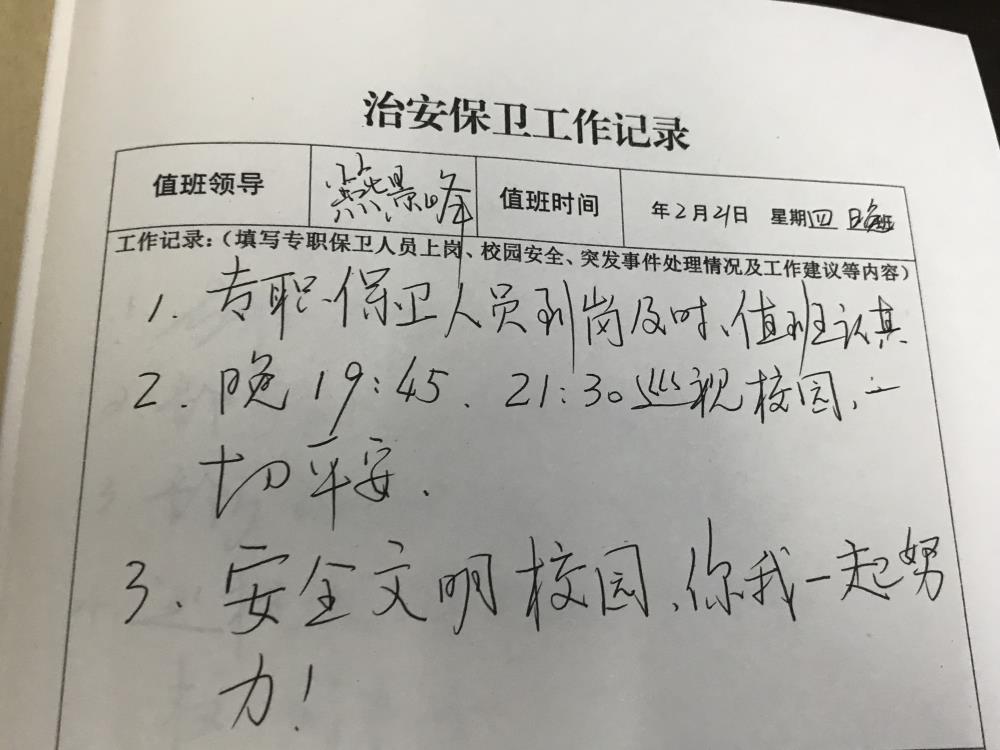 治安保卫工作记录
值班领导 景峰 值班时间 年2月21日 星期四 晚班
工作记录：（填写专职保卫人员上岗、校园安全、突发事件处理情况及工作建议等内容）
1. 专职保卫人员到岗及时、值班认真
2. 晚19:45.21:30巡视校园，一
切平安.
3. 安全文明校园，你我一起努
力！